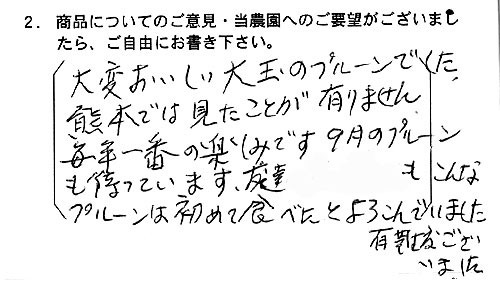 2. 商品についてのご意見・当農園へのご要望がございまし
たら、ご自由にお書き下さい。
大変おいしい大玉のプルーンでした
熊本では見たことが有りません
毎年一番の楽しみです 9月のプルーン
も待っています、友達 もこんな
プルーンは初めて食べたとよろこんでいました
有難とうござい
いました